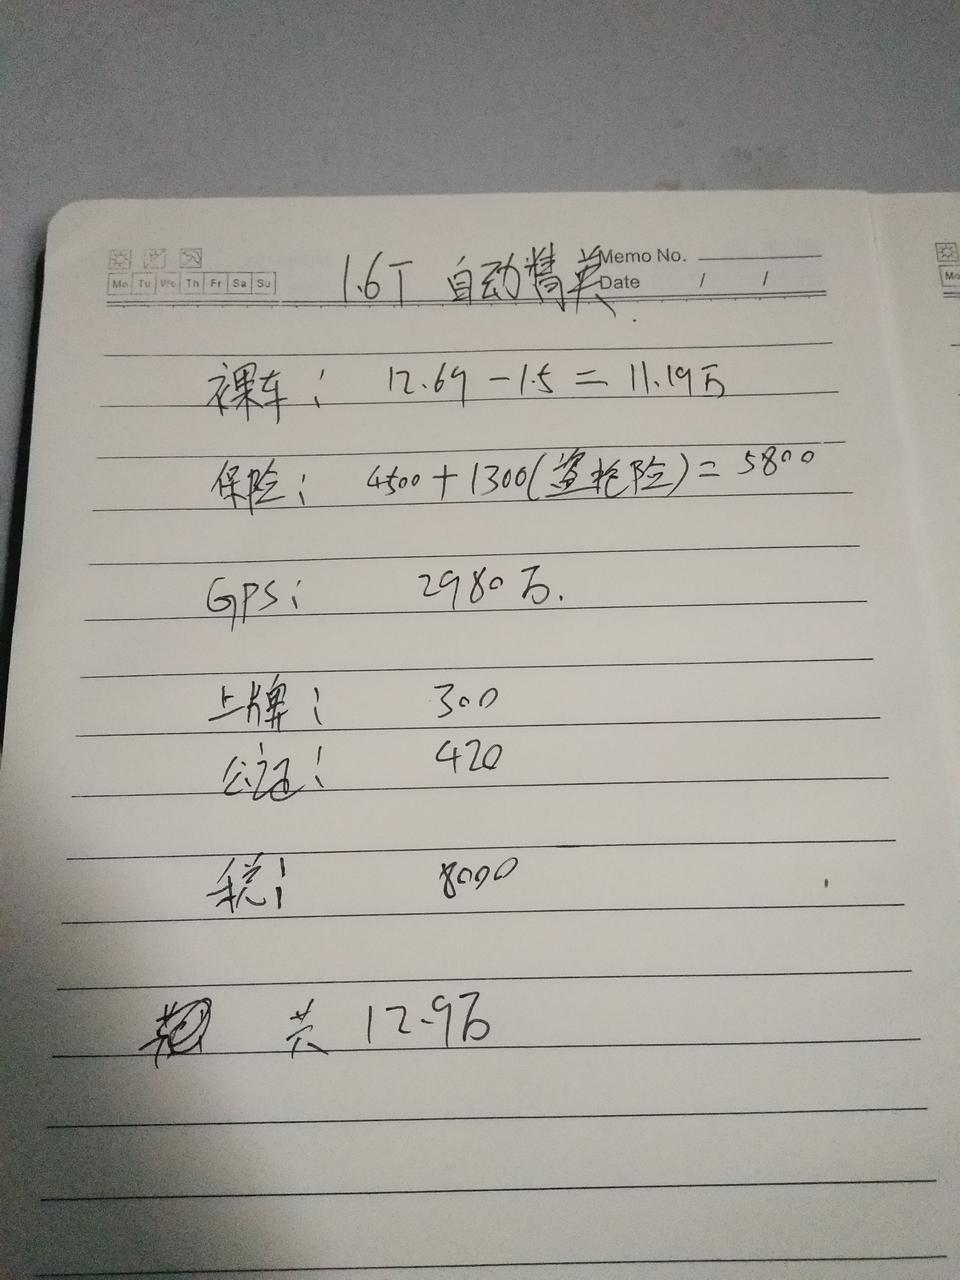 1.6T 自动精英
Memo No.
Mo Tu We Th Fr Sa Su
Date / /
裸车: 12.69 - 1.5 = 11.19万
保险: 4500 + 1300(盗抢险) = 5800
GPS: 2980万.
上牌: 300
公证: 420
税: 8000
共 12.9万